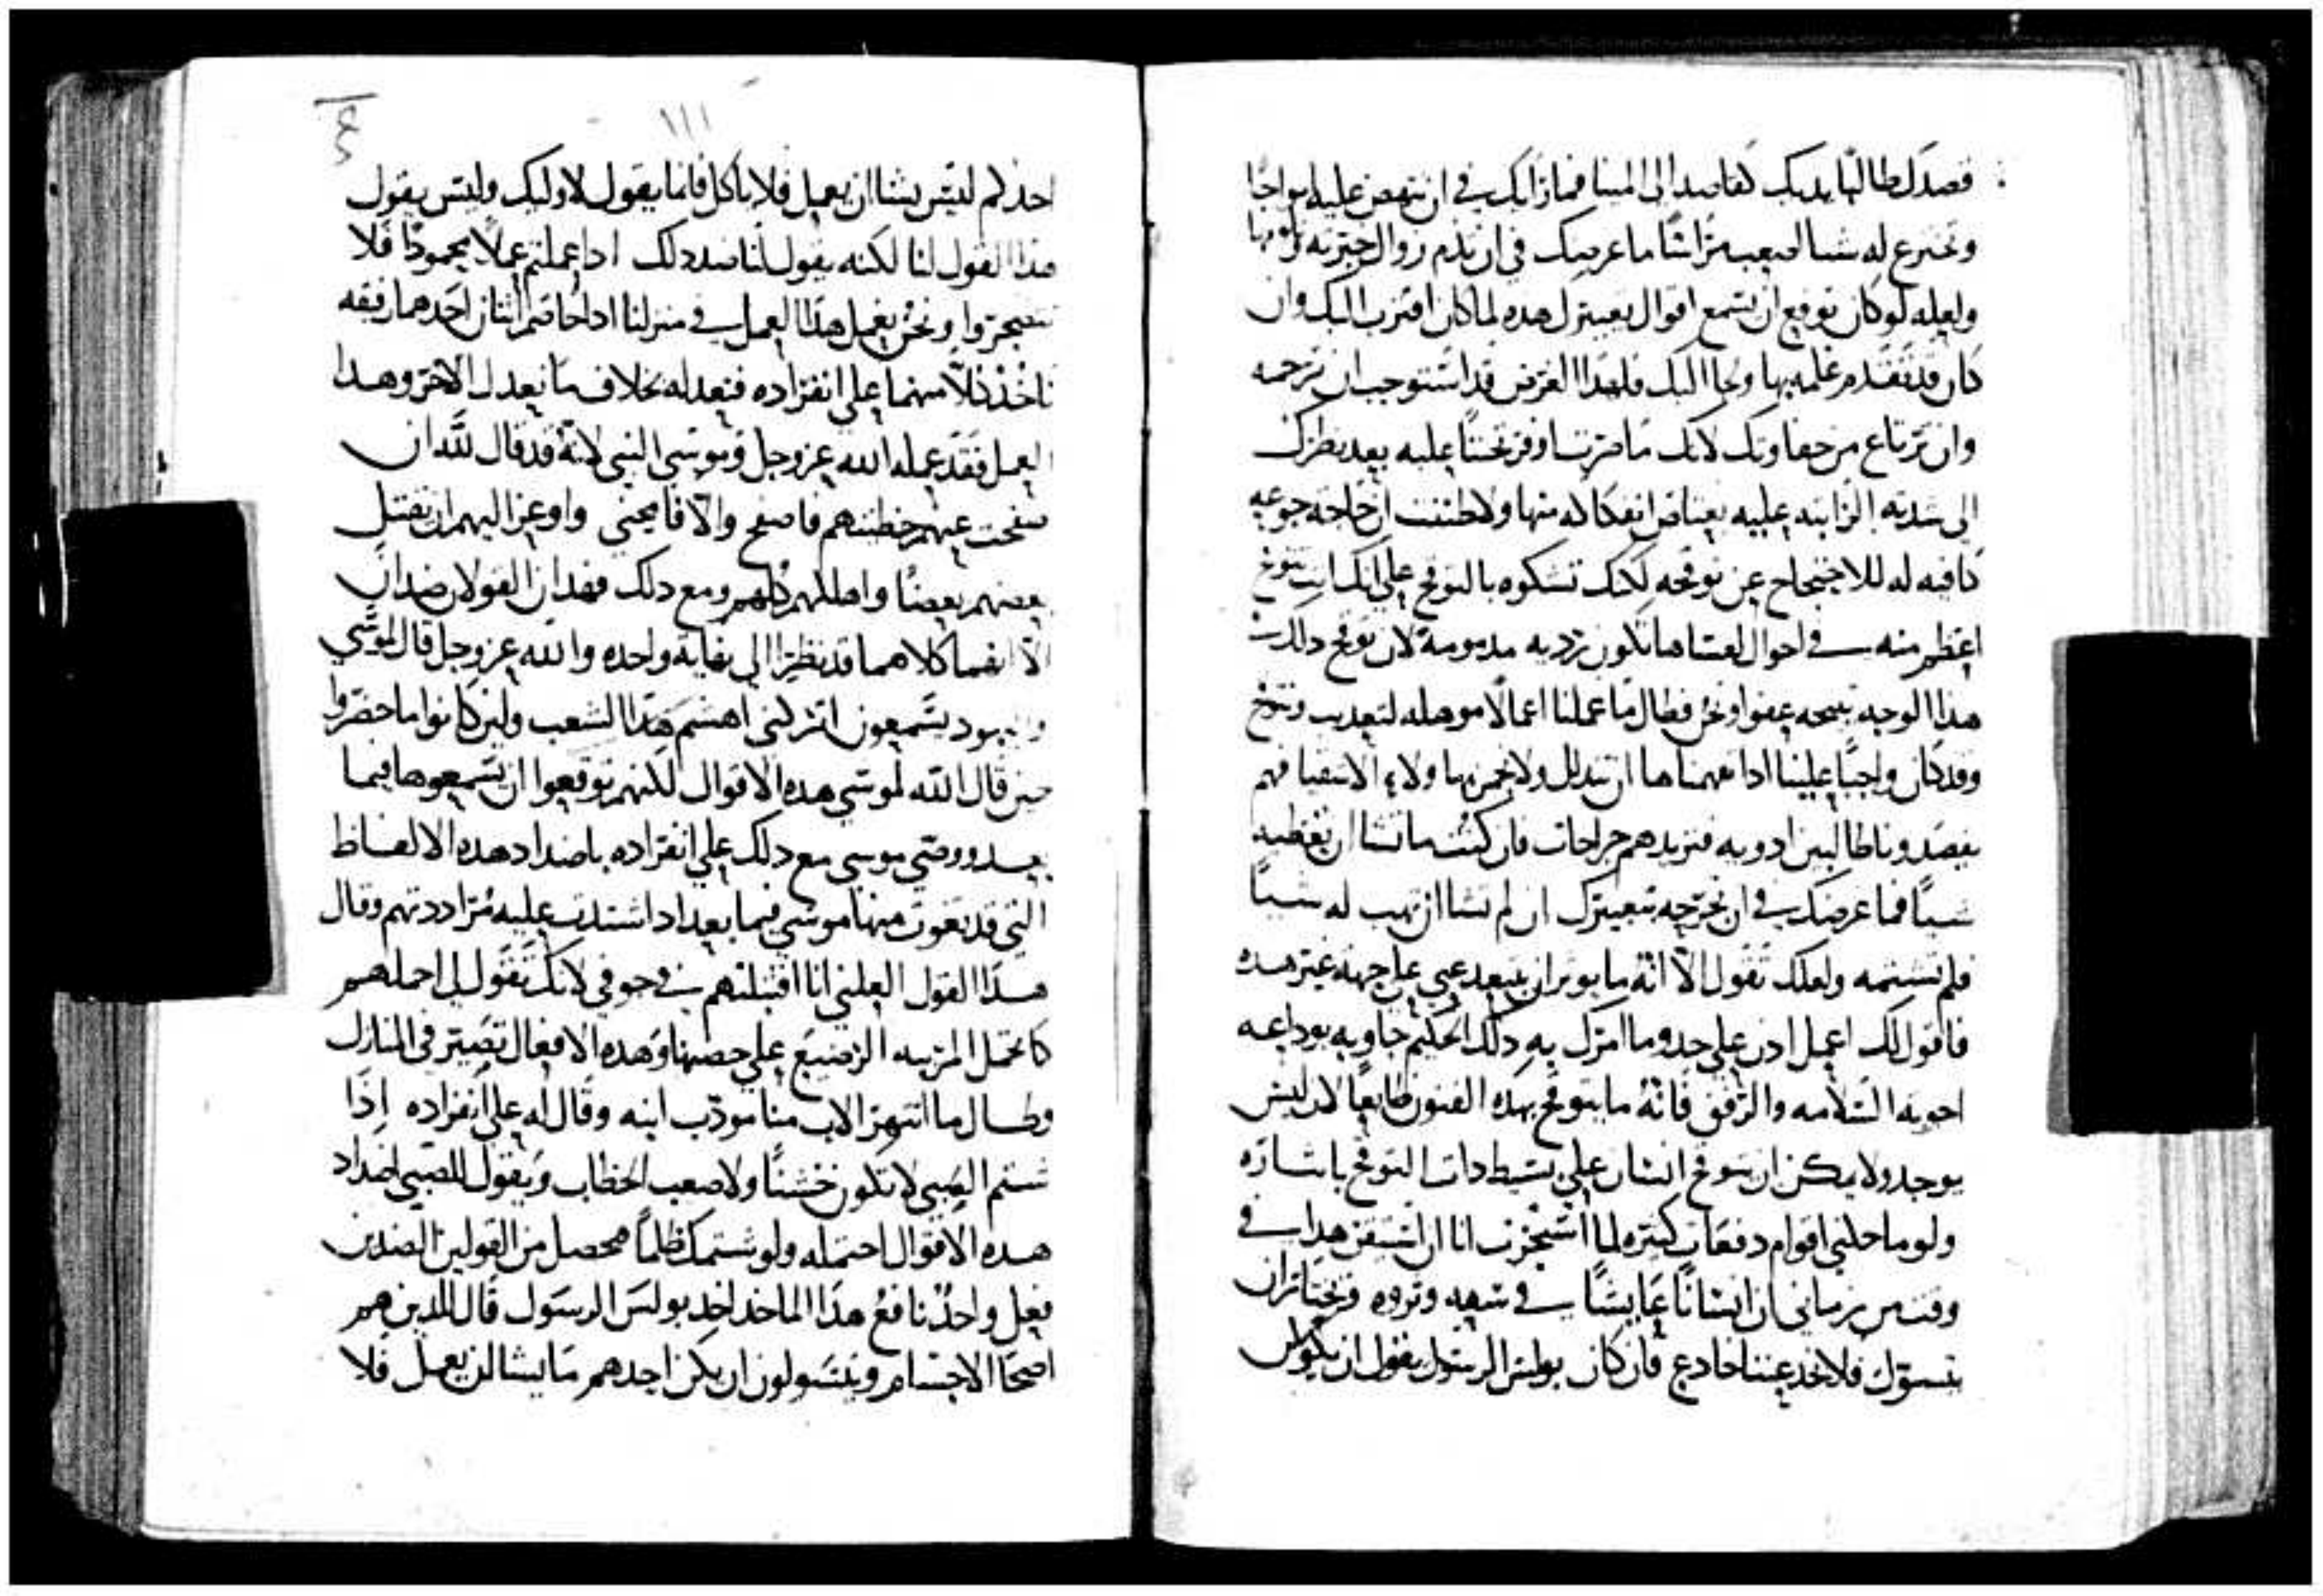 قصدك طالبًا يديك كقاصد الى المينا فما رايك في ان تنهض عليه امواجًا
ولعله لو كان توقع ان يسمع اقوال تعييرك هذه لما كان اقترب اليك وان
كان قد تقدم علمه بها ولجا اليك فلهذا الغرض قد استوجب ان ترحمه
وان ترتاع من جفاوتك لانك ما صرت اوفر تحننًا عليه بعد نظرك
الى شدته الزايده عليه ولا ظننت ان حاجة جوعه
كافيه له للاحتجاج عن توقحه لكنك تشكوه بالتوقح علي انك انت تتوقح
اعظم منه في احوال لعساها تكون رديه مدمومة لان توقح دلك
هدا الوجه ينتجه عفوا ونحن فطال ما عملنا اعمالًا موهله لتعديب ونتوقح
وقد كان واجبًا علينا ادا تفهمناها ان نتدلل ولا نخمن بها ولاء الاشقيا فهم
يقصدونا طالبين ادويه فنزيدهم جراحات فان كنت ما تشا ان تعطيه
شيئًا فما غرضك في ان تجرحه بتعييرك ان لم تشا ان تهب له شيئًا
فلم تشتمه ولعلك تقول الا انه ما يوثر ان يبتعد عني علي جهة غير هده
فاقول لك اعمل ادن علي حدو ما امرك به دلك الحكيم جاوبه بوداعه
اجوبة السلامه والرفق فانه ما يتوقح بهده الفنون طايعًا لان ليس
يوجد ولا يمكن ان يتوقح انسان علي بسيط دات التوقح باشاره
ولو ماحلني اقوام دفعات كثيره لما استجزت انا ان استيقن هدا في
وقت من زماني ان انسانًا عايشًا في سعه وثروه فيختار ان
يتسول فلا يخدعننا خادع فان كان بولس الرسول يقول ان يكون
احدكم ليس يشا ان يعمل فلا ياكل فانما يقول لاوليك وليس يقول
هدا القول لنا لكنه يقول لنا ضد دلك ادا عملتم عملًا محمودًا فلا
تتضجروا ونحن نعمل هدا العمل في منزلنا ادا خاصم اثنان احدهما رفيقه
ناخد كلًا منهما علي انفراده فنعدله بخلاف ما نعدل الاخر وهدا
العمل فقد عمله الله عز وجل وموسي النبي لانه قد قال لله ان
صفحت عنهم خطيتهم فاصفح والا فامحني واوعز اليهم ان يقتل
بعضهم بعضًا واهلكهم كلهم ومع دلك فهدان القولان ضدان
الا انهما كلاهما قد نظرا الى نهاية واحده والله عز وجل قال لموسي
واليهود يسمعون اتركني اهشم هدا الشعب ولين كانوا ما حضروا
حين قال الله لموسي هده الاقوال لكنهم توقعوا ان يسمعوها فيما
بعد ووصي موسي مع دلك علي انفراده باضداد هده الالفاظ
التي قد تفوه منها موسي فيما بعد اد اشتدت عليه مراددتهم وقال
هدا القول العلني انا اقتبلتهم في جوفي لانك تقول لي احملهم
كما تحمل المربيه الرضيع علي حضنها وهده الافعال تصير في المنازل
وطال ما انتهر الاب منا مودب ابنه وقال له علي انفراده إذا
شتم الصبي لا تكون خشنًا ولا صعب الخطاب ويقول للصبي اضداد
هده الاقوال احتمله ولو شتمك ظلمًا فحصل من القولين الضدين
فعل واحدٌ نافعٌ هدا الماخد اخد بولس الرسول قال للدين هم
اصحا الاجسام ويتسولون ان يكن احدهم ما يشا ان يعمل فلا